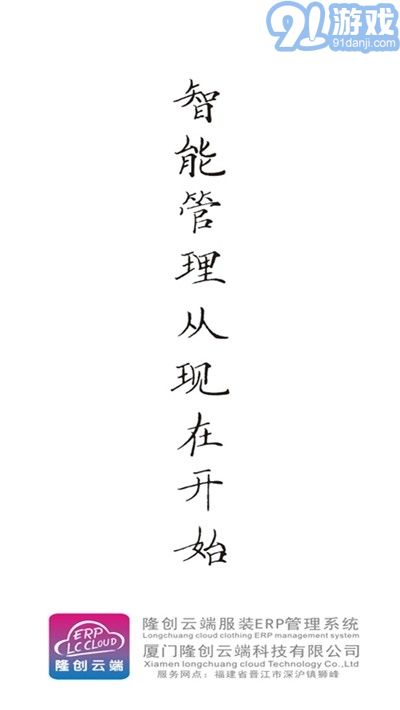 91游戏
91danji.com
智能管理从现在开始
ERP
LC CLOUD
隆创云端
隆创云端服装ERP管理系统
Longchuang cloud clothing ERP management system
厦门隆创云端科技有限公司
Xiamen longchuang cloud Technology Co.,Ltd
服务网点：福建省晋江市深沪镇狮峰